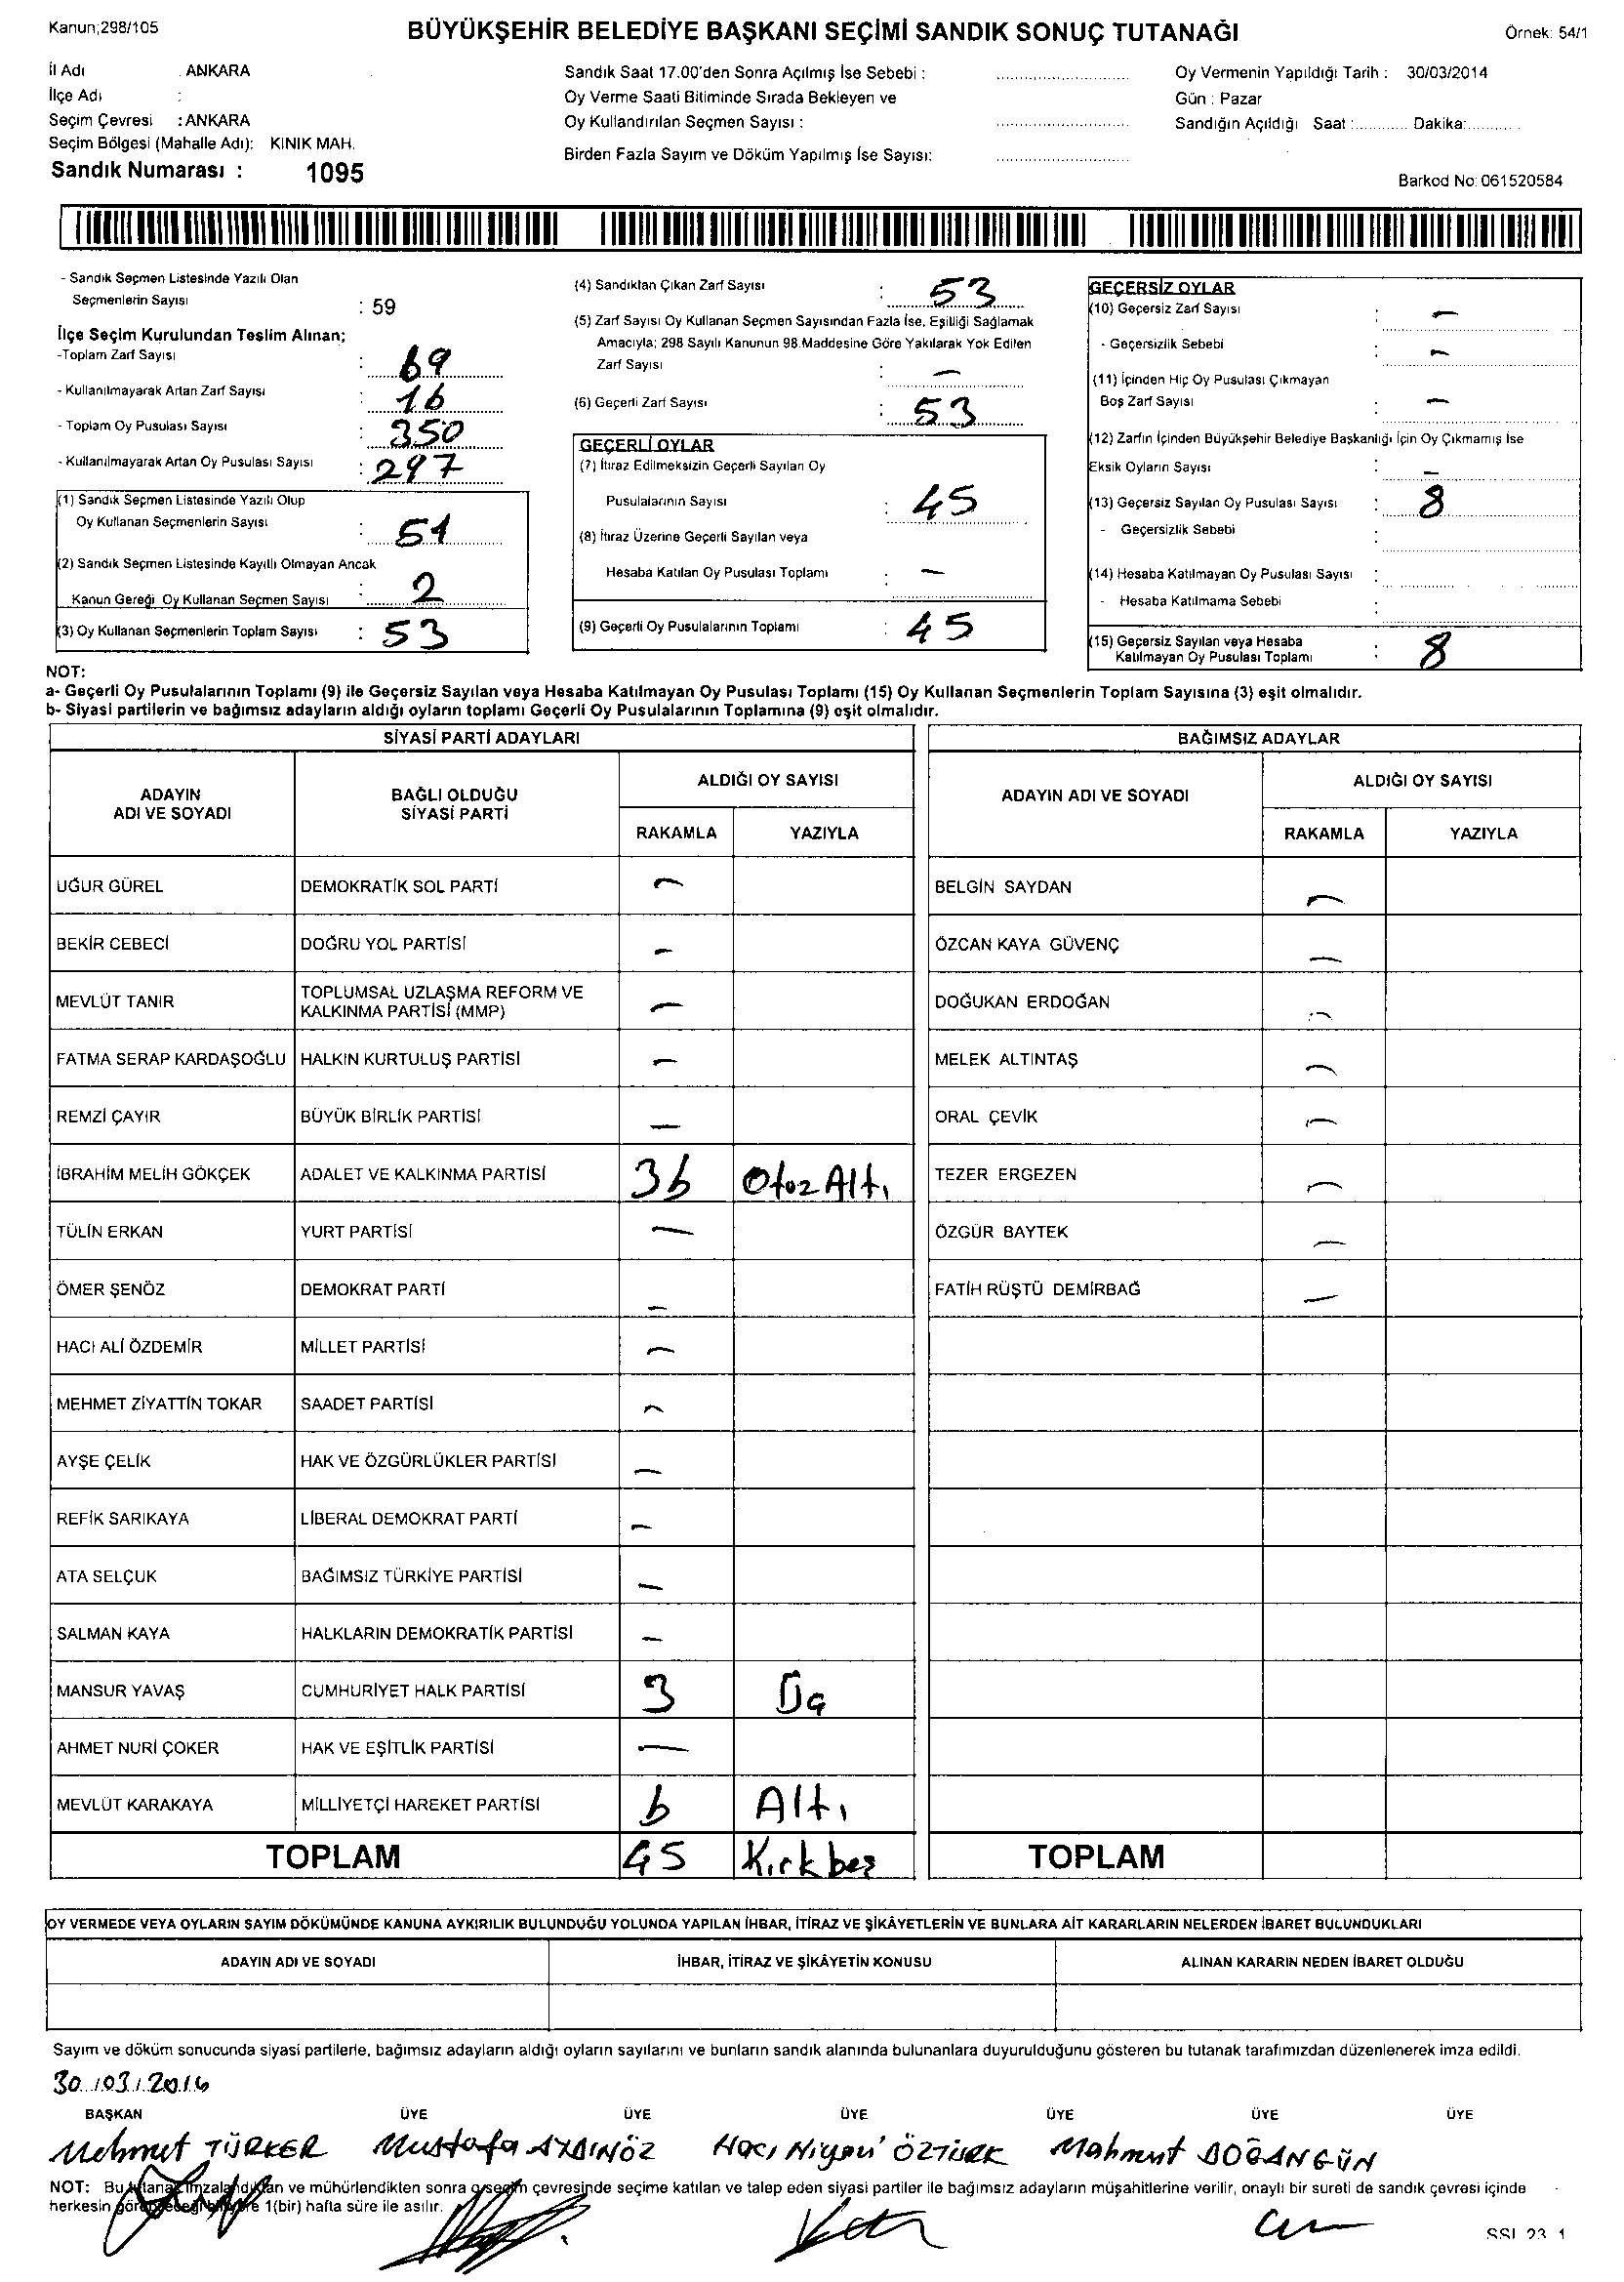 Kanun;298/105
BÜYÜKŞEHİR BELEDİYE BAŞKANI SEÇİMİ SANDIK SONUÇ TUTANAĞI
Örnek: 54/1
İl Adı : ANKARA
İlçe Adı :
Seçim Çevresi : ANKARA
Seçim Bölgesi (Mahalle Adı): KINIK MAH.
Sandık Numarası : 1095
Sandık Saat 17.00'den Sonra Açılmış İse Sebebi :
Oy Verme Saati Bitiminde Sırada Bekleyen ve
Oy Kullandırılan Seçmen Sayısı :
Birden Fazla Sayım ve Döküm Yapılmış İse Sayısı:
Oy Vermenin Yapıldığı Tarih : 30/03/2014
Gün : Pazar
Sandığın Açıldığı Saat :........... Dakika:...........
Barkod No: 061520584
- Sandık Seçmen Listesinde Yazılı Olan
Seçmenlerin Sayısı : 59
İlçe Seçim Kurulundan Teslim Alınan;
-Toplam Zarf Sayısı : 69
- Kullanılmayarak Artan Zarf Sayısı : 16
- Toplam Oy Pusulası Sayısı : 350
- Kullanılmayarak Artan Oy Pusulası Sayısı : 297
(1) Sandık Seçmen Listesinde Yazılı Olup
Oy Kullanan Seçmenlerin Sayısı : 51
(2) Sandık Seçmen Listesinde Kayıtlı Olmayan Ancak
Kanun Gereği Oy Kullanan Seçmen Sayısı : 2
(3) Oy Kullanan Seçmenlerin Toplam Sayısı : 53
(4) Sandıktan Çıkan Zarf Sayısı : 53
(5) Zarf Sayısı Oy Kullanan Seçmen Sayısından Fazla İse, Eşitliği Sağlamak
Amacıyla; 298 Sayılı Kanunun 98.Maddesine Göre Yakılarak Yok Edilen
Zarf Sayısı : —
(6) Geçerli Zarf Sayısı : 53
GEÇERLİ OYLAR
(7) İtiraz Edilmeksizin Geçerli Sayılan Oy
Pusulalarının Sayısı : 45
(8) İtiraz Üzerine Geçerli Sayılan veya
Hesaba Katılan Oy Pusulası Toplamı : —
(9) Geçerli Oy Pusulalarının Toplamı : 45
GEÇERSİZ OYLAR
(10) Geçersiz Zarf Sayısı : —
- Geçersizlik Sebebi : —
(11) İçinden Hiç Oy Pusulası Çıkmayan
Boş Zarf Sayısı : —
(12) Zarfın İçinden Büyükşehir Belediye Başkanlığı İçin Oy Çıkmamış İse
Eksik Oyların Sayısı : —
(13) Geçersiz Sayılan Oy Pusulası Sayısı : 8
- Geçersizlik Sebebi :
(14) Hesaba Katılmayan Oy Pusulası Sayısı :
- Hesaba Katılmama Sebebi :
(15) Geçersiz Sayılan veya Hesaba
Katılmayan Oy Pusulası Toplamı : 8
NOT:
a- Geçerli Oy Pusulalarının Toplamı (9) ile Geçersiz Sayılan veya Hesaba Katılmayan Oy Pusulası Toplamı (15) Oy Kullanan Seçmenlerin Toplam Sayısına (3) eşit olmalıdır.
b- Siyasi partilerin ve bağımsız adayların aldığı oyların toplamı Geçerli Oy Pusulalarının Toplamına (9) eşit olmalıdır.
SİYASİ PARTİ ADAYLARI
ADAYIN ADI VE SOYADI
BAĞLI OLDUĞU SİYASİ PARTİ
ALDIĞI OY SAYISI
RAKAMLA YAZIYLA
UĞUR GÜREL DEMOKRATİK SOL PARTİ —
BEKİR CEBECİ DOĞRU YOL PARTİSİ —
MEVLÜT TANIR TOPLUMSAL UZLAŞMA REFORM VE KALKINMA PARTİSİ (MMP) —
FATMA SERAP KARDAŞOĞLU HALKIN KURTULUŞ PARTİSİ —
REMZİ ÇAYIR BÜYÜK BİRLİK PARTİSİ —
İBRAHİM MELİH GÖKÇEK ADALET VE KALKINMA PARTİSİ 36 Otuz Altı
TÜLİN ERKAN YURT PARTİSİ —
ÖMER ŞENÖZ DEMOKRAT PARTİ —
HACI ALİ ÖZDEMİR MİLLET PARTİSİ —
MEHMET ZİYATTİN TOKAR SAADET PARTİSİ —
AYŞE ÇELİK HAK VE ÖZGÜRLÜKLER PARTİSİ —
REFİK SARIKAYA LİBERAL DEMOKRAT PARTİ —
ATA SELÇUK BAĞIMSIZ TÜRKİYE PARTİSİ —
SALMAN KAYA HALKLARIN DEMOKRATİK PARTİSİ —
MANSUR YAVAŞ CUMHURİYET HALK PARTİSİ 3 Üç
AHMET NURİ ÇOKER HAK VE EŞİTLİK PARTİSİ —
MEVLÜT KARAKAYA MİLLİYETÇİ HAREKET PARTİSİ 6 Altı
TOPLAM 45 Kırkbeş
BAĞIMSIZ ADAYLAR
ADAYIN ADI VE SOYADI
ALDIĞI OY SAYISI
RAKAMLA YAZIYLA
BELGİN SAYDAN —
ÖZCAN KAYA GÜVENÇ —
DOĞUKAN ERDOĞAN —
MELEK ALTINTAŞ —
ORAL ÇEVİK —
TEZER ERGEZEN —
ÖZGÜR BAYTEK —
FATİH RÜŞTÜ DEMİRBAĞ —
TOPLAM
OY VERMEDE VEYA OYLARIN SAYIM DÖKÜMÜNDE KANUNA AYKIRILIK BULUNDUĞU YOLUNDA YAPILAN İHBAR, İTİRAZ VE ŞİKÂYETLERİN VE BUNLARA AİT KARARLARIN NELERDEN İBARET BULUNDUKLARI
ADAYIN ADI VE SOYADI İHBAR, İTİRAZ VE ŞİKÂYETİN KONUSU ALINAN KARARIN NEDEN İBARET OLDUĞU
Sayım ve döküm sonucunda siyasi partilerle, bağımsız adayların aldığı oyların sayılarını ve bunların sandık alanında bulunanlara duyurulduğunu gösteren bu tutanak tarafımızdan düzenlenerek imza edildi.
30/03/2014
BAŞKAN ÜYE ÜYE ÜYE ÜYE ÜYE ÜYE
Mehmet TÜRKER Mustafa AYDINÖZ Hacı Niyazi ÖZTÜRK Mahmut DOĞANGÜN
NOT: Bu tutanak imzalandıktan ve mühürlendikten sonra o seçim çevresinde seçime katılan ve talep eden siyasi partiler ile bağımsız adayların müşahitlerine verilir, onaylı bir sureti de sandık çevresi içinde
herkesin görebileceği bir yere 1(bir) hafta süre ile asılır.